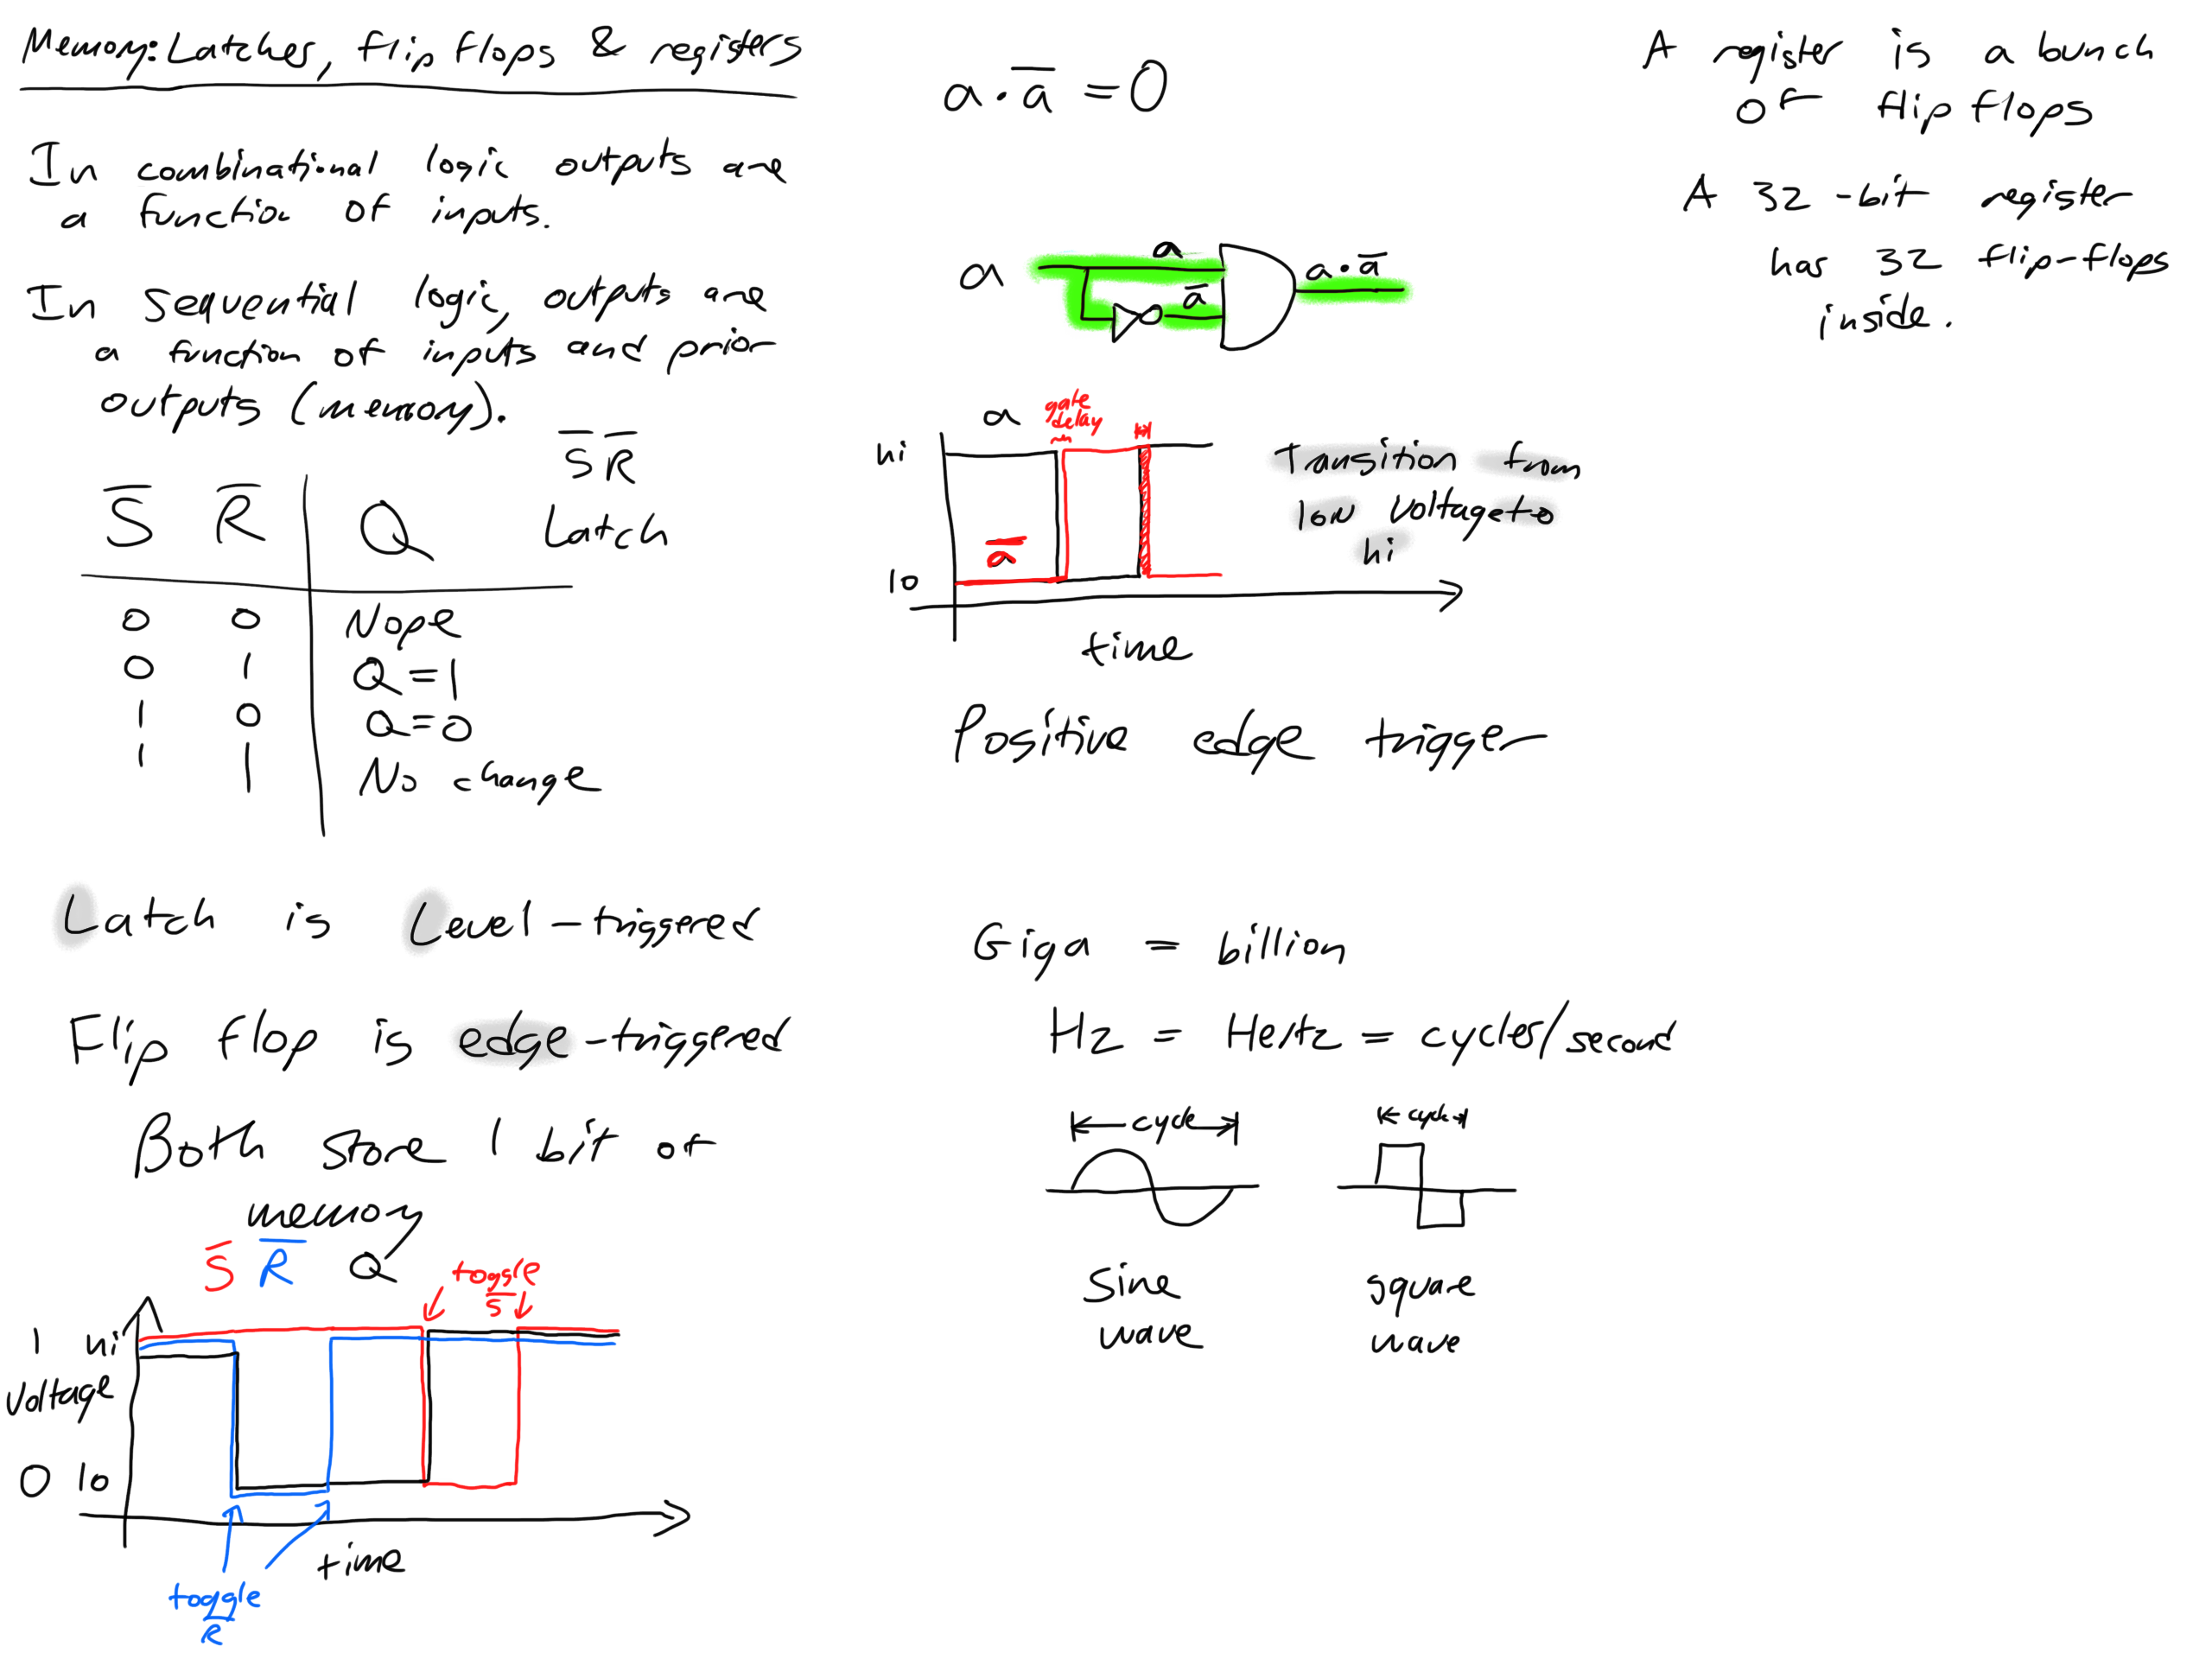 Memory: Latches, flip flops & registers
In combinational logic outputs are
a function of inputs.
In sequential logic, outputs are
a function of inputs and prior
outputs (memory).
S̅ R̅
Latch
S̅ R̅ Q
0 0 Nope
0 1 Q=1
1 0 Q=0
1 1 No change
Latch is Level-triggered
Flip flop is edge-triggered
Both store 1 bit of
memory
S̅ R̅ Q
toggle
S̅
1 hi
Voltage
0 lo
time
toggle
R̅
a·a̅ = 0
a
a
a̅
a·a̅
a
gate
delay
hi
a̅
lo
time
Transition from
low voltage to
hi
Positive edge trigger
Giga = billion
Hz = Hertz = cycles/second
cycle
cycle
Sine
wave
square
wave
A register is a bunch
of flip flops
A 32-bit register
has 32 flip-flops
inside.